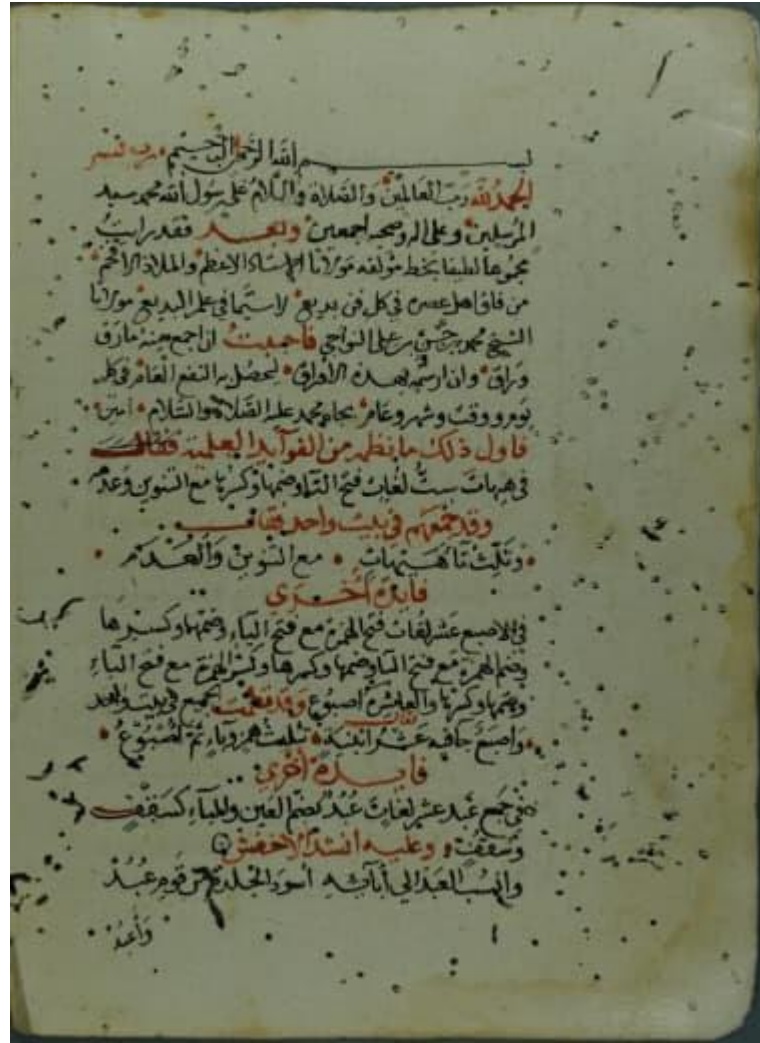 بسم الله الرحمن الرحيم رب يسر
الحمد لله رب العالمين والصلاة والسلام على رسول الله محمد سيد
المرسلين وعلى اله وصحبه اجمعين وبعد فقد رايت
مجموعا لطيفا بخط مؤلفه مولانا الاستاذ الاعظم والملاذ الافخم
من فاق اهل عصره في كل فن بديع لاسيما في علم البديع مولانا
الشيخ محمد بن حسن بن علي النواجي فاحببت ان اجمع منه مارق
وراق وان ارسمه بهذه الاوراق ليحصل به النفع العام في كل
يوم ووقت وشهر وعام بجاه محمد عليه الصلاة والسلام امين
فاول ذلك ما نظمه من الفوايد العلمية فقال
في هيهات ست لغات فتح التا وضمها وكسرها مع التنوين وعدمه
وقد جمعهم في بيت واحد فقال
وثلث تا هيهات مع التنوين والعدم
فايدة أخرى
في الاصبع عشر لغات فتح الهمزة مع فتح الباء وضمها وكسرها
وضم الهمزة مع فتح الباء وضمها وكسرها وكسر الهمزة مع فتح الباء
وضمها وكسرها والعاشرة اصبوع وقد نظمت الجميع في بيت واحد
فقال
واصبع جا فيه عشر ابنية تثليث همز وباء ثم اصبوع
فايدة أخرى
في جمع عبد عشر لغات عُبُد بضم العين والباء كسقف
وسُقُف وعليه انشد الاخفش
وانسب العبد الى أبآئه أسود الجلدة من قوم عُبُد
وأعبد